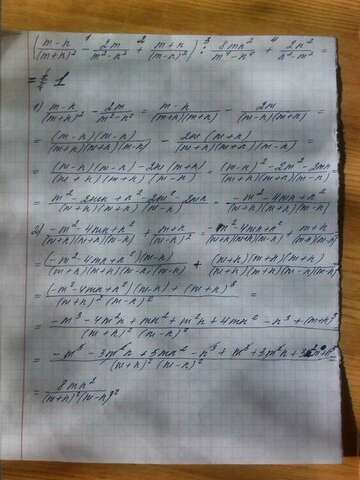 (m-n/(m+n)² - 2m/m²-n² + m+n/(m-n)²) : 8mn²/m⁴-n⁴ + 2n²/n²-m² =
= 1
1) m-n/(m+n)² - 2m/m²-n² = m-n/(m+n)(m+n) - 2m/(m-n)(m+n) =
= (m-n)(m-n)/(m+n)(m+n)(m-n) - 2m(m+n)/(m+n)(m+n)(m-n) =
= (m-n)(m-n)-2m(m+n)/(m+n)(m+n)(m-n) = (m-n)²-2m²-2mn/(m+n)(m+n)(m-n) =
= m²-2mn+n²-2m²-2mn/(m+n)(m+n)(m-n) = -m²-4mn+n²/(m+n)(m+n)(m-n)
2) -m²-4mn+n²/(m+n)(m+n)(m-n) + m+n/(m-n)² = -m²-4mn+n²/(m+n)(m+n)(m-n) + m+n/(m-n)(m-n) =
= (-m²-4mn+n²)(m-n)/(m+n)(m+n)(m-n)(m-n) + (m+n)(m+n)(m+n)/(m+n)(m+n)(m-n)(m-n) =
= (-m²-4mn+n²)(m-n)+(m+n)³/(m+n)²(m-n)² =
= -m³-4m²n+mn²+m²n+4mn²-n³+(m+n)³/(m+n)²(m-n)² =
= -m³-3m²n+5mn²-n³+m³+3m²n+3mn²+n³/(m+n)²(m-n)² =
= 8mn²/(m+n)²(m-n)²